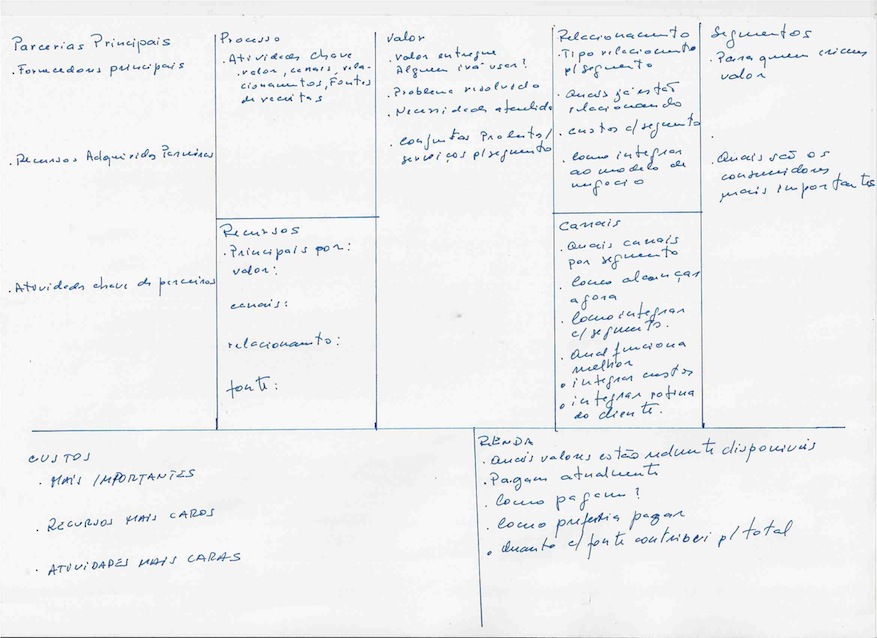 Parcerias Principais
. Fornecedores principais
. Recursos Adquiridos Parceiros
. Atividades chave de parceiros
Processo
. Atividades chave
. valor, canais, rela-
cionamentos, Fontes
de receitas
Recursos
. Principais por:
valor:
canais:
relacionamento:
fonte:
Valor
. valor entregue
Alguem irá usar?
. Problema resolvido
. Necessidades atendida
. conjuntos Produtos/
serviços p/segmento
Relacionamento
. Tipo relacionamento
p/segmento
. Quais já estão
relacionando
. custos c/segmento
. como integrar
ao modelo de
negocio
Canais
. Quais canais
por segmento
. Como alcançar
agora
. Como integrar
c/segmento.
. Qual funciona
melhor
. integrar custos
. integrar rotina
do cliente.
Segmentos
. Para quem criamos
valor
.
. Quais são os
consumidores
mais importantes
CUSTOS
. MAIS IMPORTANTES
. RECURSOS MAIS CAROS
. ATIVIDADES MAIS CARAS
RENDA
. Quais valores estão disponiveis
. Pagam atualmente
. Como pagam?
. Como preferia pagar
. Quanto c/fonte contribui p/ total